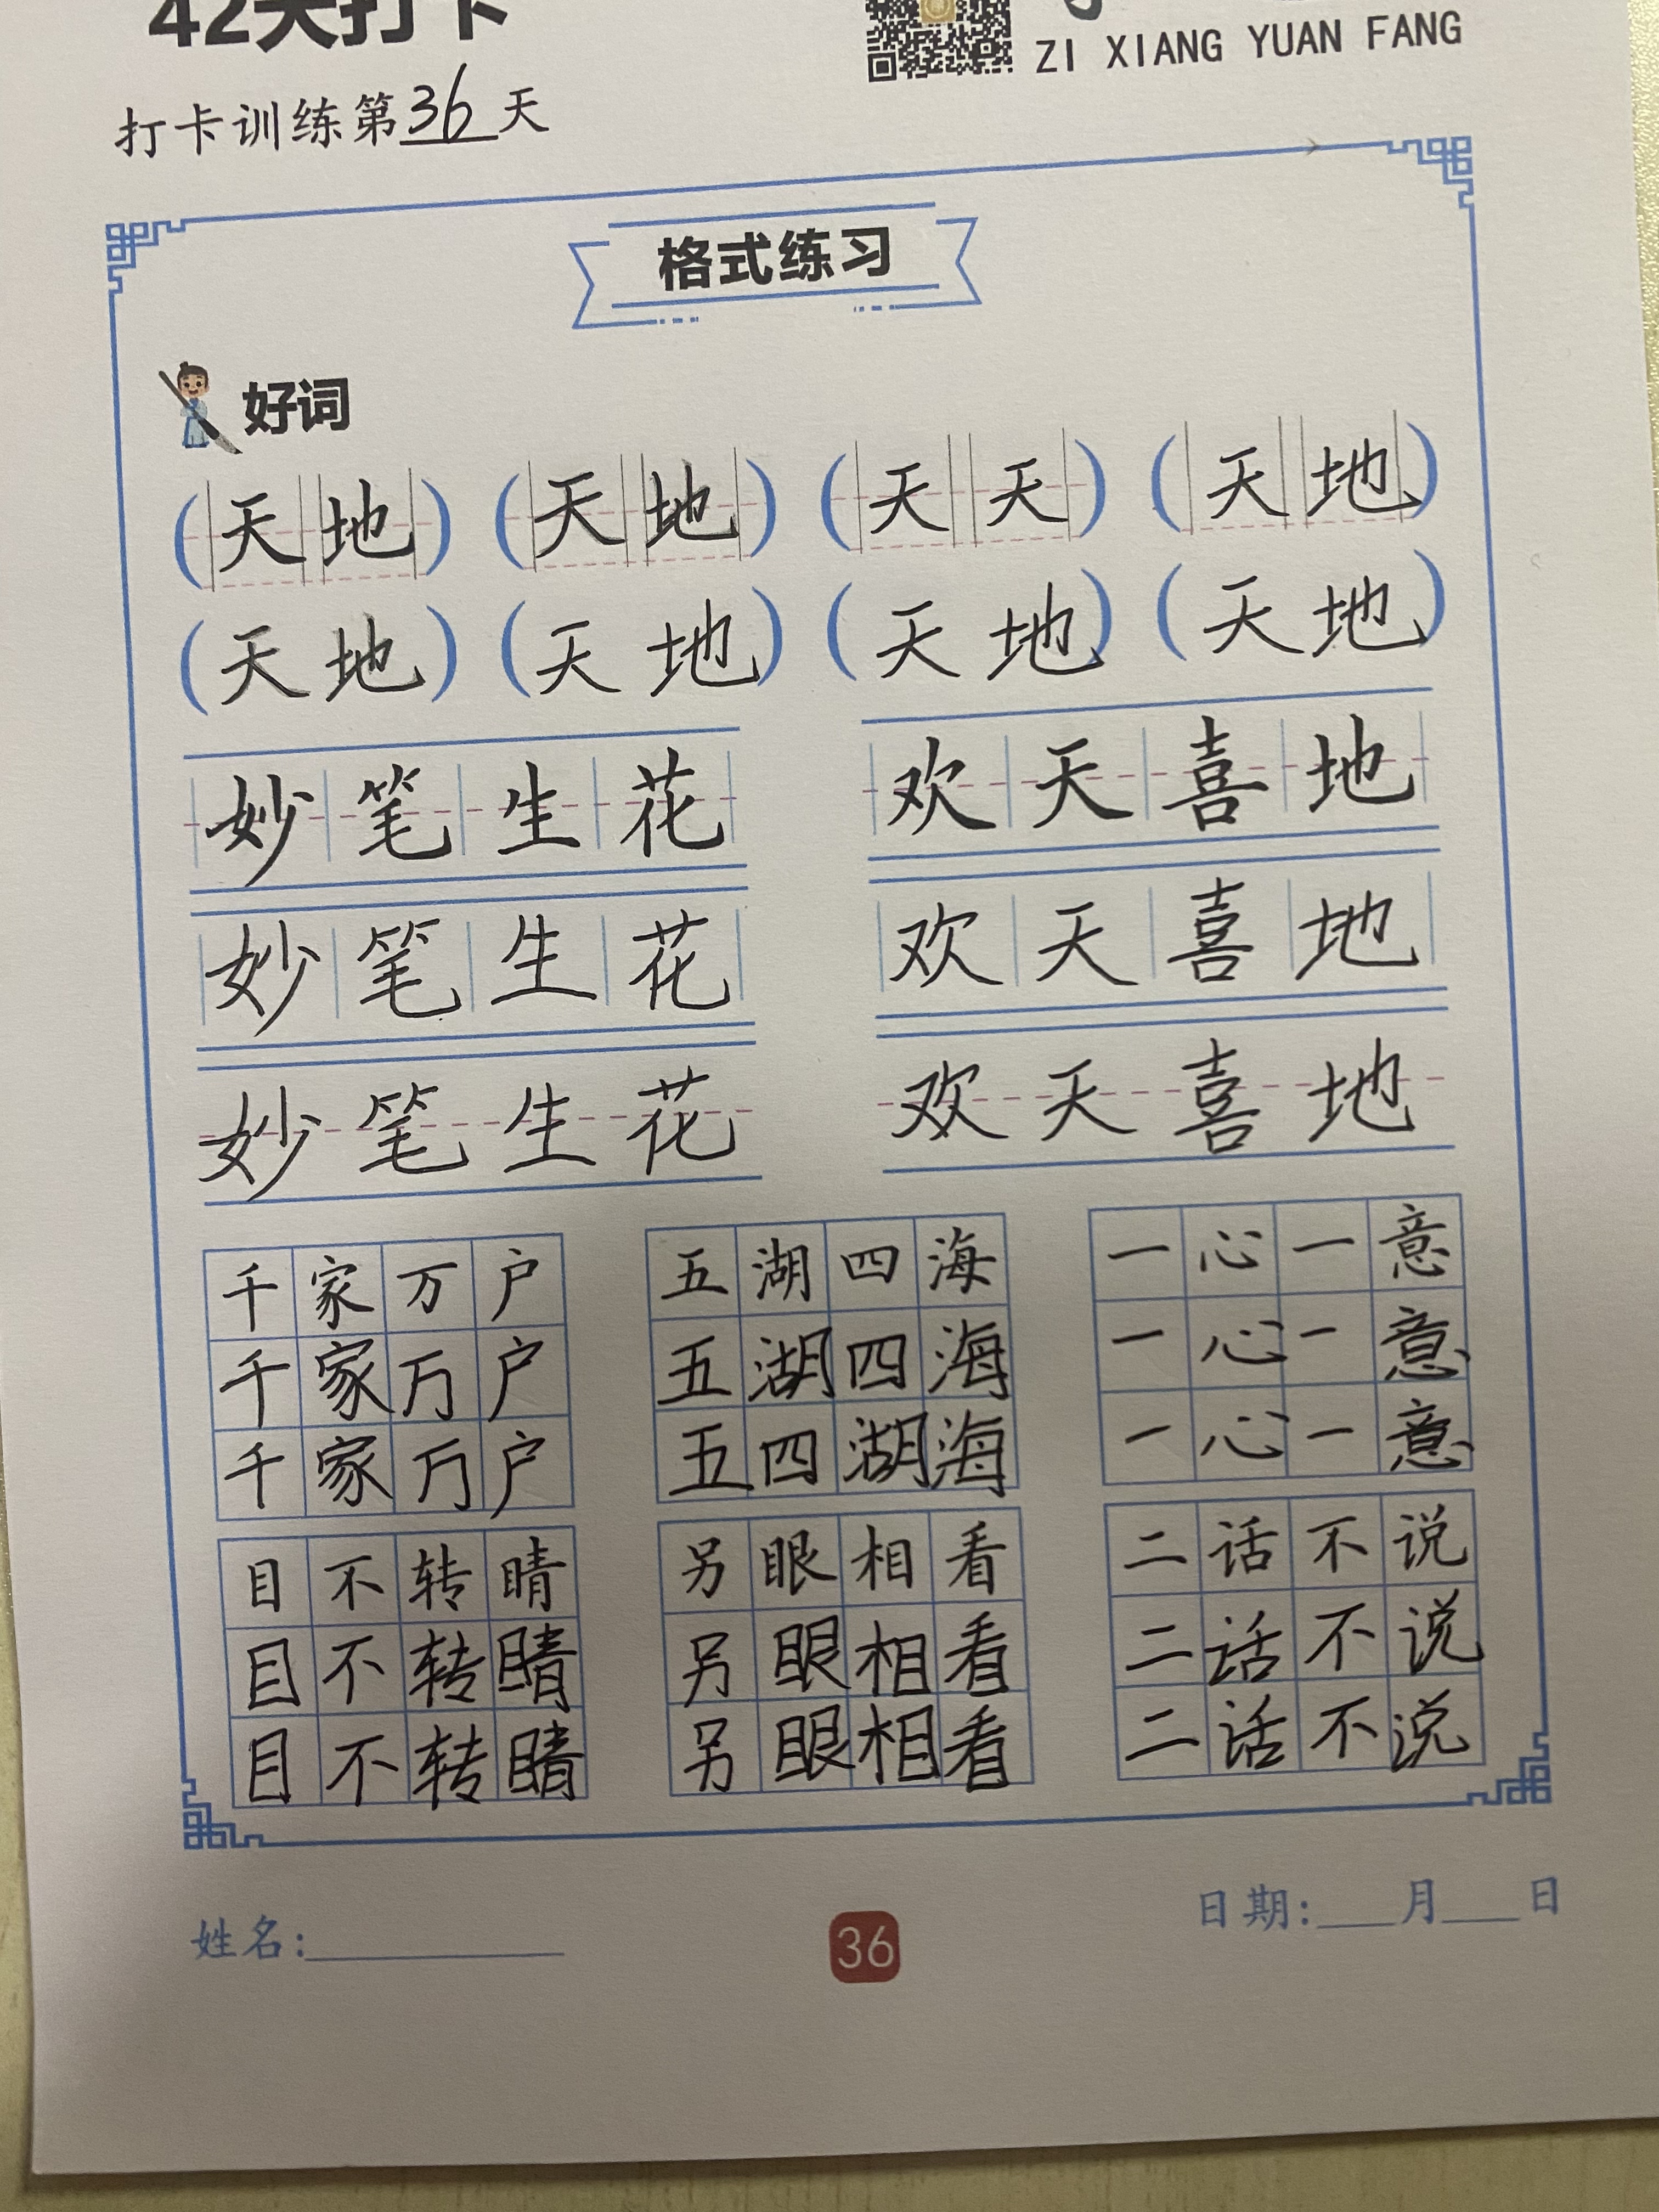 42天打卡
ZI XIANG YUAN FANG
打卡训练第36天
格式练习
好词
(天地) (天地) (天天) (天地)
(天地) (天地) (天地) (天地)
妙笔生花 欢天喜地
妙笔生花 欢天喜地
妙笔生花 欢天喜地
千家万户 五湖四海 一心一意
千家万户 五湖四海 一心一意
千家万户 五四湖海 一心一意
目不转睛 另眼相看 二话不说
目不转睛 另眼相看 二话不说
目不转睛 另眼相看 二话不说
姓名: 36 日期: 月 日